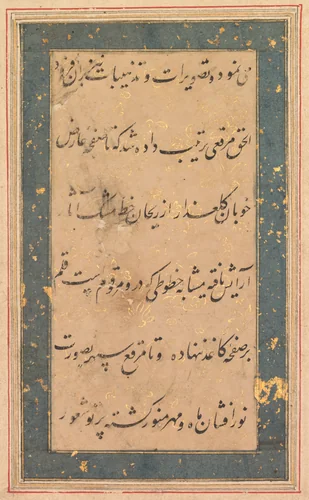 می نمود و تصویرات و تذهیبات نیز بران افزود
الحق مرقعی ترتیب داده شد که تا صفحه عارض
خوبان گلعذار از ریحان خط مشک
آرایش یافته مشابه خطوطی که درو مرقومست قلم
بر صفحه کاغذ نهاده و تا مرقع سپهر بصورت
نور افشان ماه و مهر منور گشته پرتو شعور